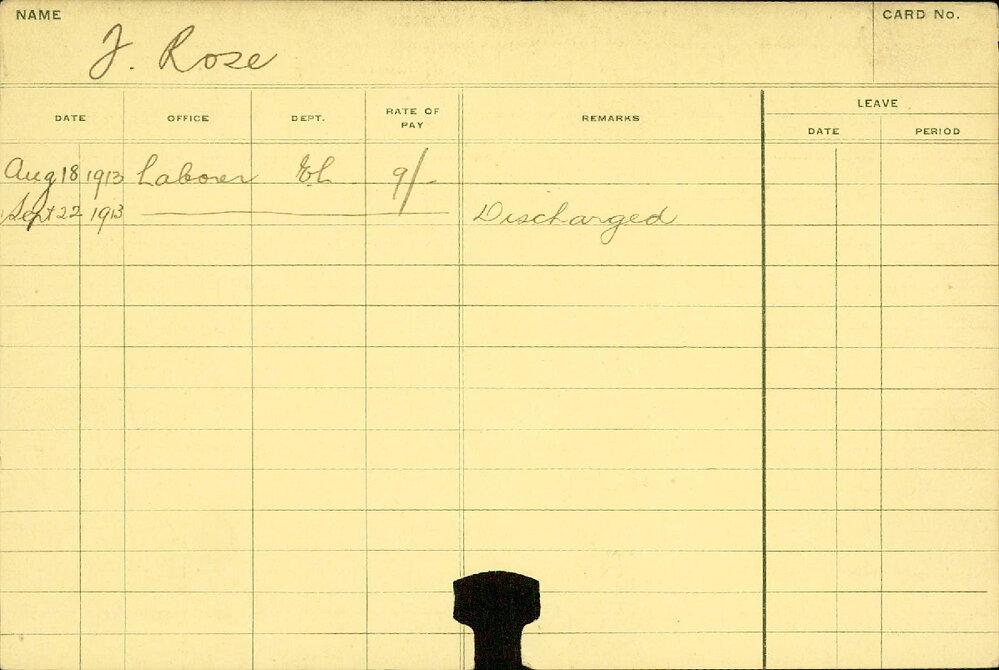 NAME CARD No.
J. Rose
DATE OFFICE DEPT. RATE OF PAY REMARKS LEAVE
DATE PERIOD
Aug 18 1913 Laborer 9/-
Sept 22 1913 Discharged